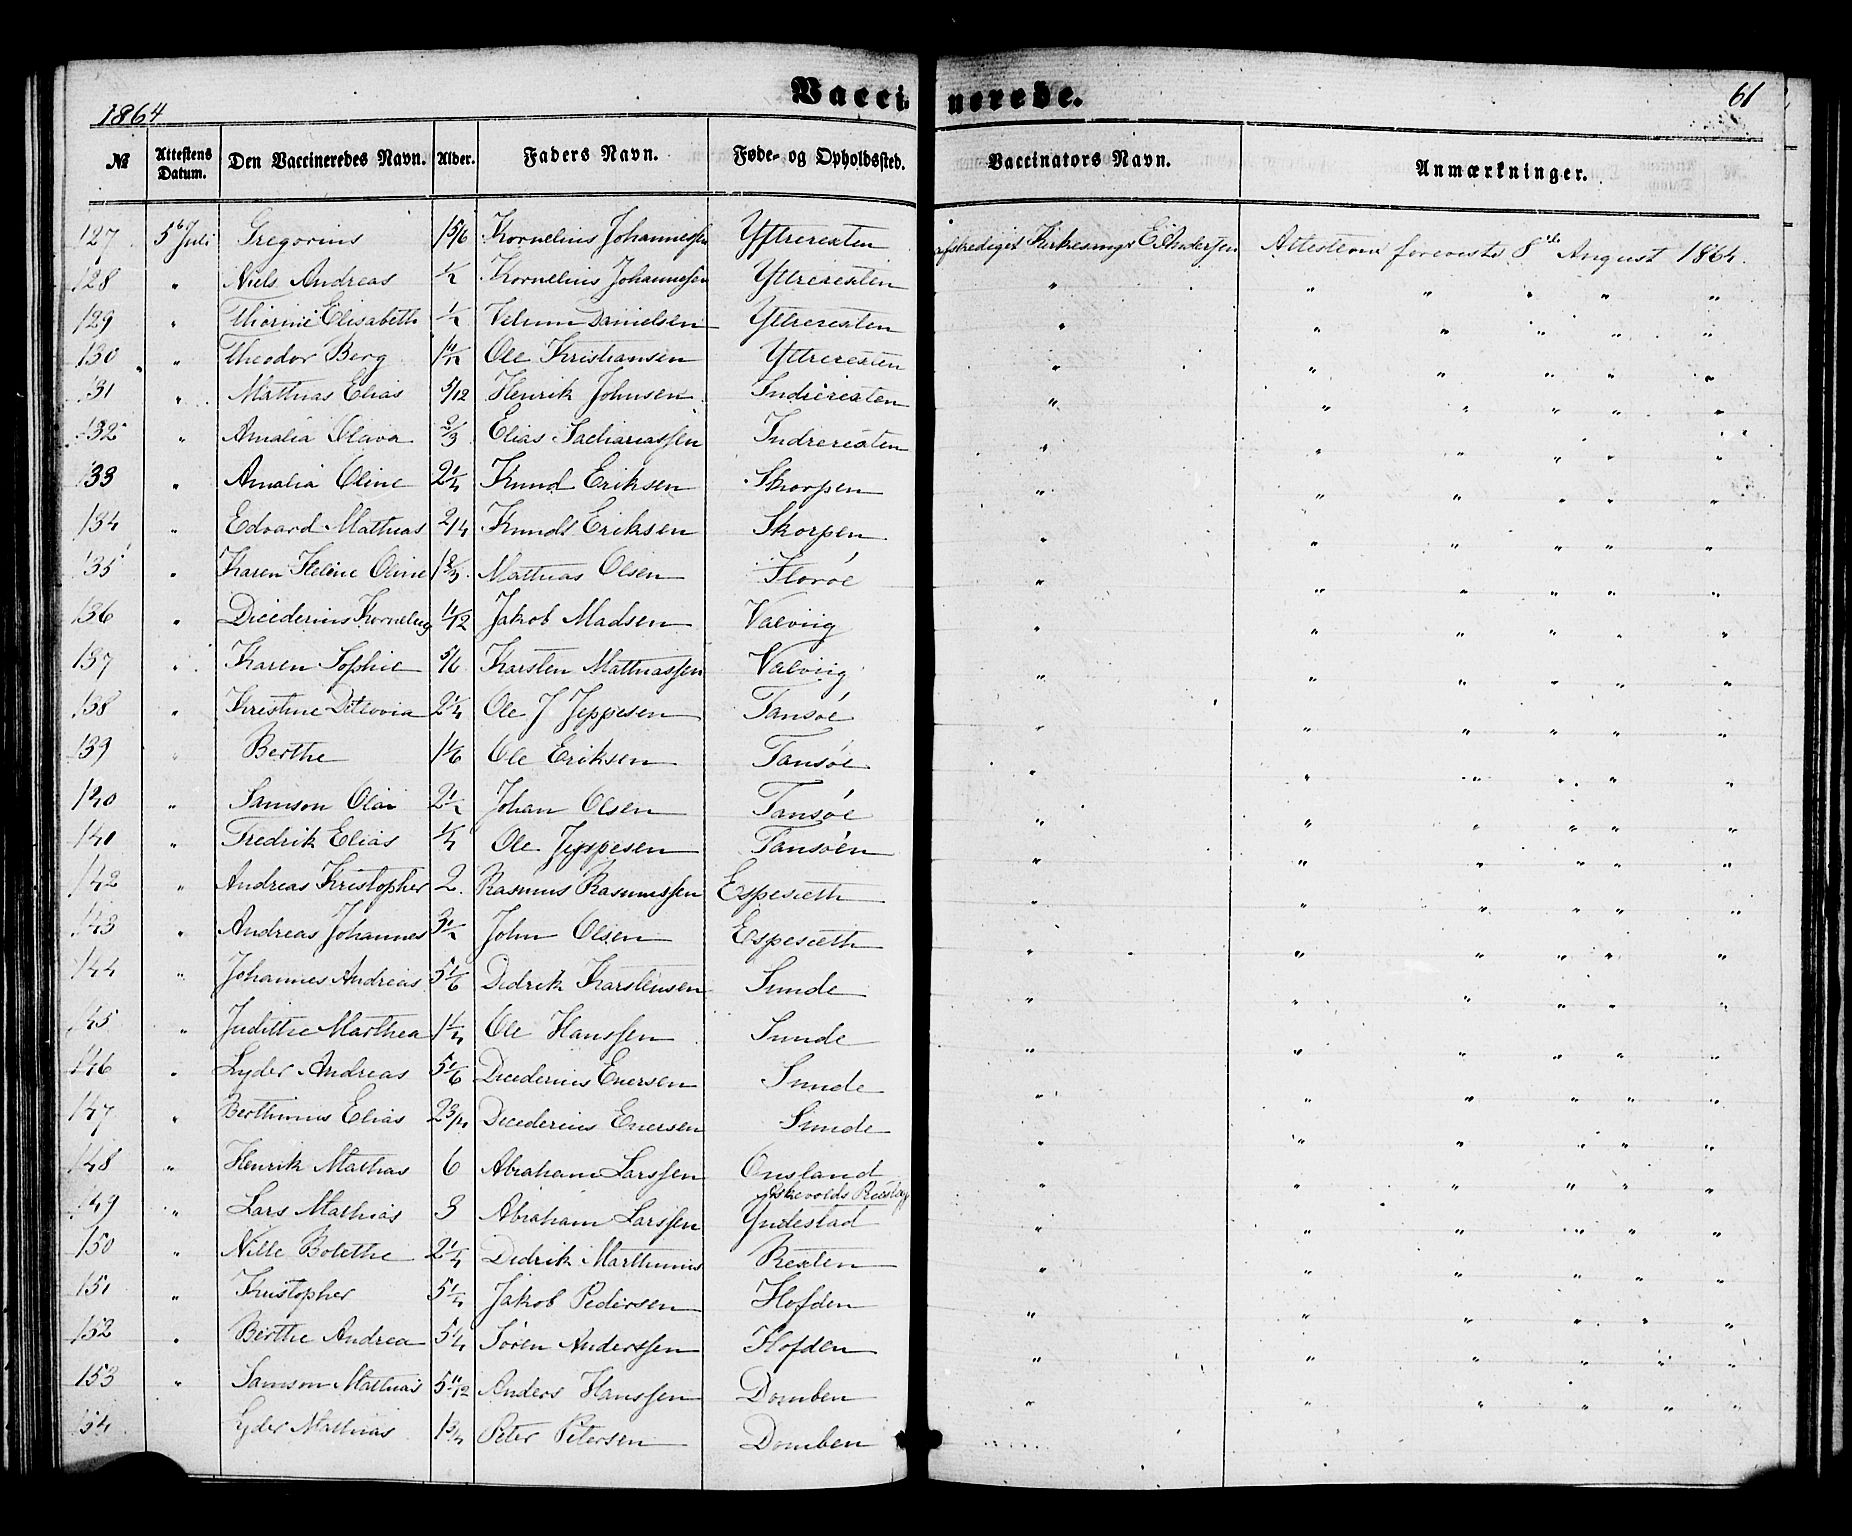 Vaccinerede.
1864
61
№ Attestens Datum. Den Vaccineredes Navn. Alder. Faders Navn. Føde- og Opholdssted. Vaccinators Navn. Anmærkninger.
127 5te Juli Gregorius 1 5/6 Kornelius Johannessen Yttrerexten afskediget Kirkesanger E. Andersen Attesterne foreviste 8de August 1864.
128 " Niels Andreas 1/2 Kornelius Johannessen Yttrerexten " " " " " "
129 " Thorine Elisabeth 1/2 Danielsen Yttrerexten " " " " " "
130 " Theodor Berg 1 11/12 Ole Kristiansen Yttrerexten " " " " " "
131 " Mathias Elias 5/12 Henrik Johnsen Indrerexten " " " " " "
132 " Amalia Olava 2/3 Elias Sachariassen Indrerexten " " " " " "
133 " Amalia Oline 2 1/4 Knud Eriksen Skorpen " " " " " "
134 " Edvard Mathias 2/4 Knudt Eriksen Skorpen " " " " " "
135 " Karen Heline Oline 1 2/3 Mathias Olsen Florøe " " " " " "
136 " Dicederius Kornelius 11/12 Jakob Madsen Valviig " " " " " "
137 " Karen Sophie 5/6 Karsten Mathiassen Valviig " " " " " "
138 " Kristine Ditlovia 2 1/4 Ole J Jeppesen Tansøe " " " " " "
139 " Berthe 1 1/6 Ole Eriksen Tansøe " " " " " "
140 " Samson Olai 2 1/2 Johan Olsen Tansøe " " " " " "
140 " Fredrik Elias 1/4 Ole Jeppesen Tansøen " " " " " "
142 " Andreas Kristopher 2 Rasmus Rasmussen Espesæth " " " " " "
143 " Andreas Johannes 3 1/2 John Olsen Espesæth " " " " " "
144 " Johannes Andreas 5 1/6 Didrik Karstensen Sunde " " " " " "
145 " Judithe Marthea 1 1/4 Ole Hanssen Sunde " " " " " "
146 " Lyder Andreas 5 1/6 Dicederius Enersen Sunde " " " " " "
147 " Berthinius Elias 2 3/4 Dicederius Enersen Sunde " " " " " "
148 " Henrik Mathias 6 Abraham Larssen Onsland " " " " " "
149 " Lars Mathias 3 Abraham Larssen Askevolds Yndestad " " " " " "
150 " Nille Bolethe 2 1/4 Didrik Marthinius Rexten " " " " " "
151 " Kristopher 5 1/4 Jakob Pedersen Hofden " " " " " "
152 " Berthe Andrea 5 1/4 Søren Anderssen Hofden " " " " " "
153 " Samson Mathias 5 11/12 Anders Hanssen Domben " " " " " "
154 Lyder Mathias 1 3/4 Peter Petersen Domben